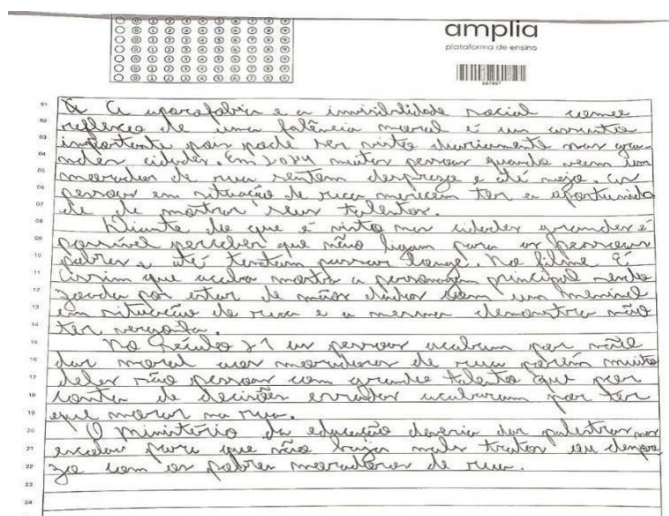 amplia
plataforma de ensino
A aporofobia e a invisibilidade social como
reflexo de uma falência moral é um assunto
importante pois pode ser visto diariamente nas gran
ndes cidades. Em 2024 muitas pessoas quando veem um
morador de rua sentem desprezo e até nojo. As
pessoas em situação de rua merecem ter a oportunida
de de mostrar seus talentos.
Diante do que é visto nas cidades grandes é
possível perceber que não ligam para as pessoas
pobres e até tentam passar longe. No filme É
Assim que acaba mostra a personagem principal sendo
zoada por estar de mãos dadas com um menino
em situação de rua e a mesma demonstra não
ter vergonha.
No Século 21 as pessoas acabam por não
dar moral aos moradores de rua porém muito
deles são pessoas com grande talento que por
conta de decisões erradas acabaram por ter
que morar na rua.
O Ministério da educação deveria dar palestras nas
escolas para que não haja maus tratos ou
com os pobres moradores de rua.